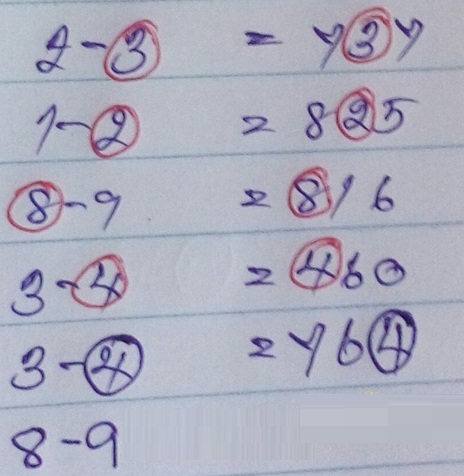 2-3 = 737
1-2 = 825
8-9 = 816
3-4 = 460
3-4 = 764
8-9